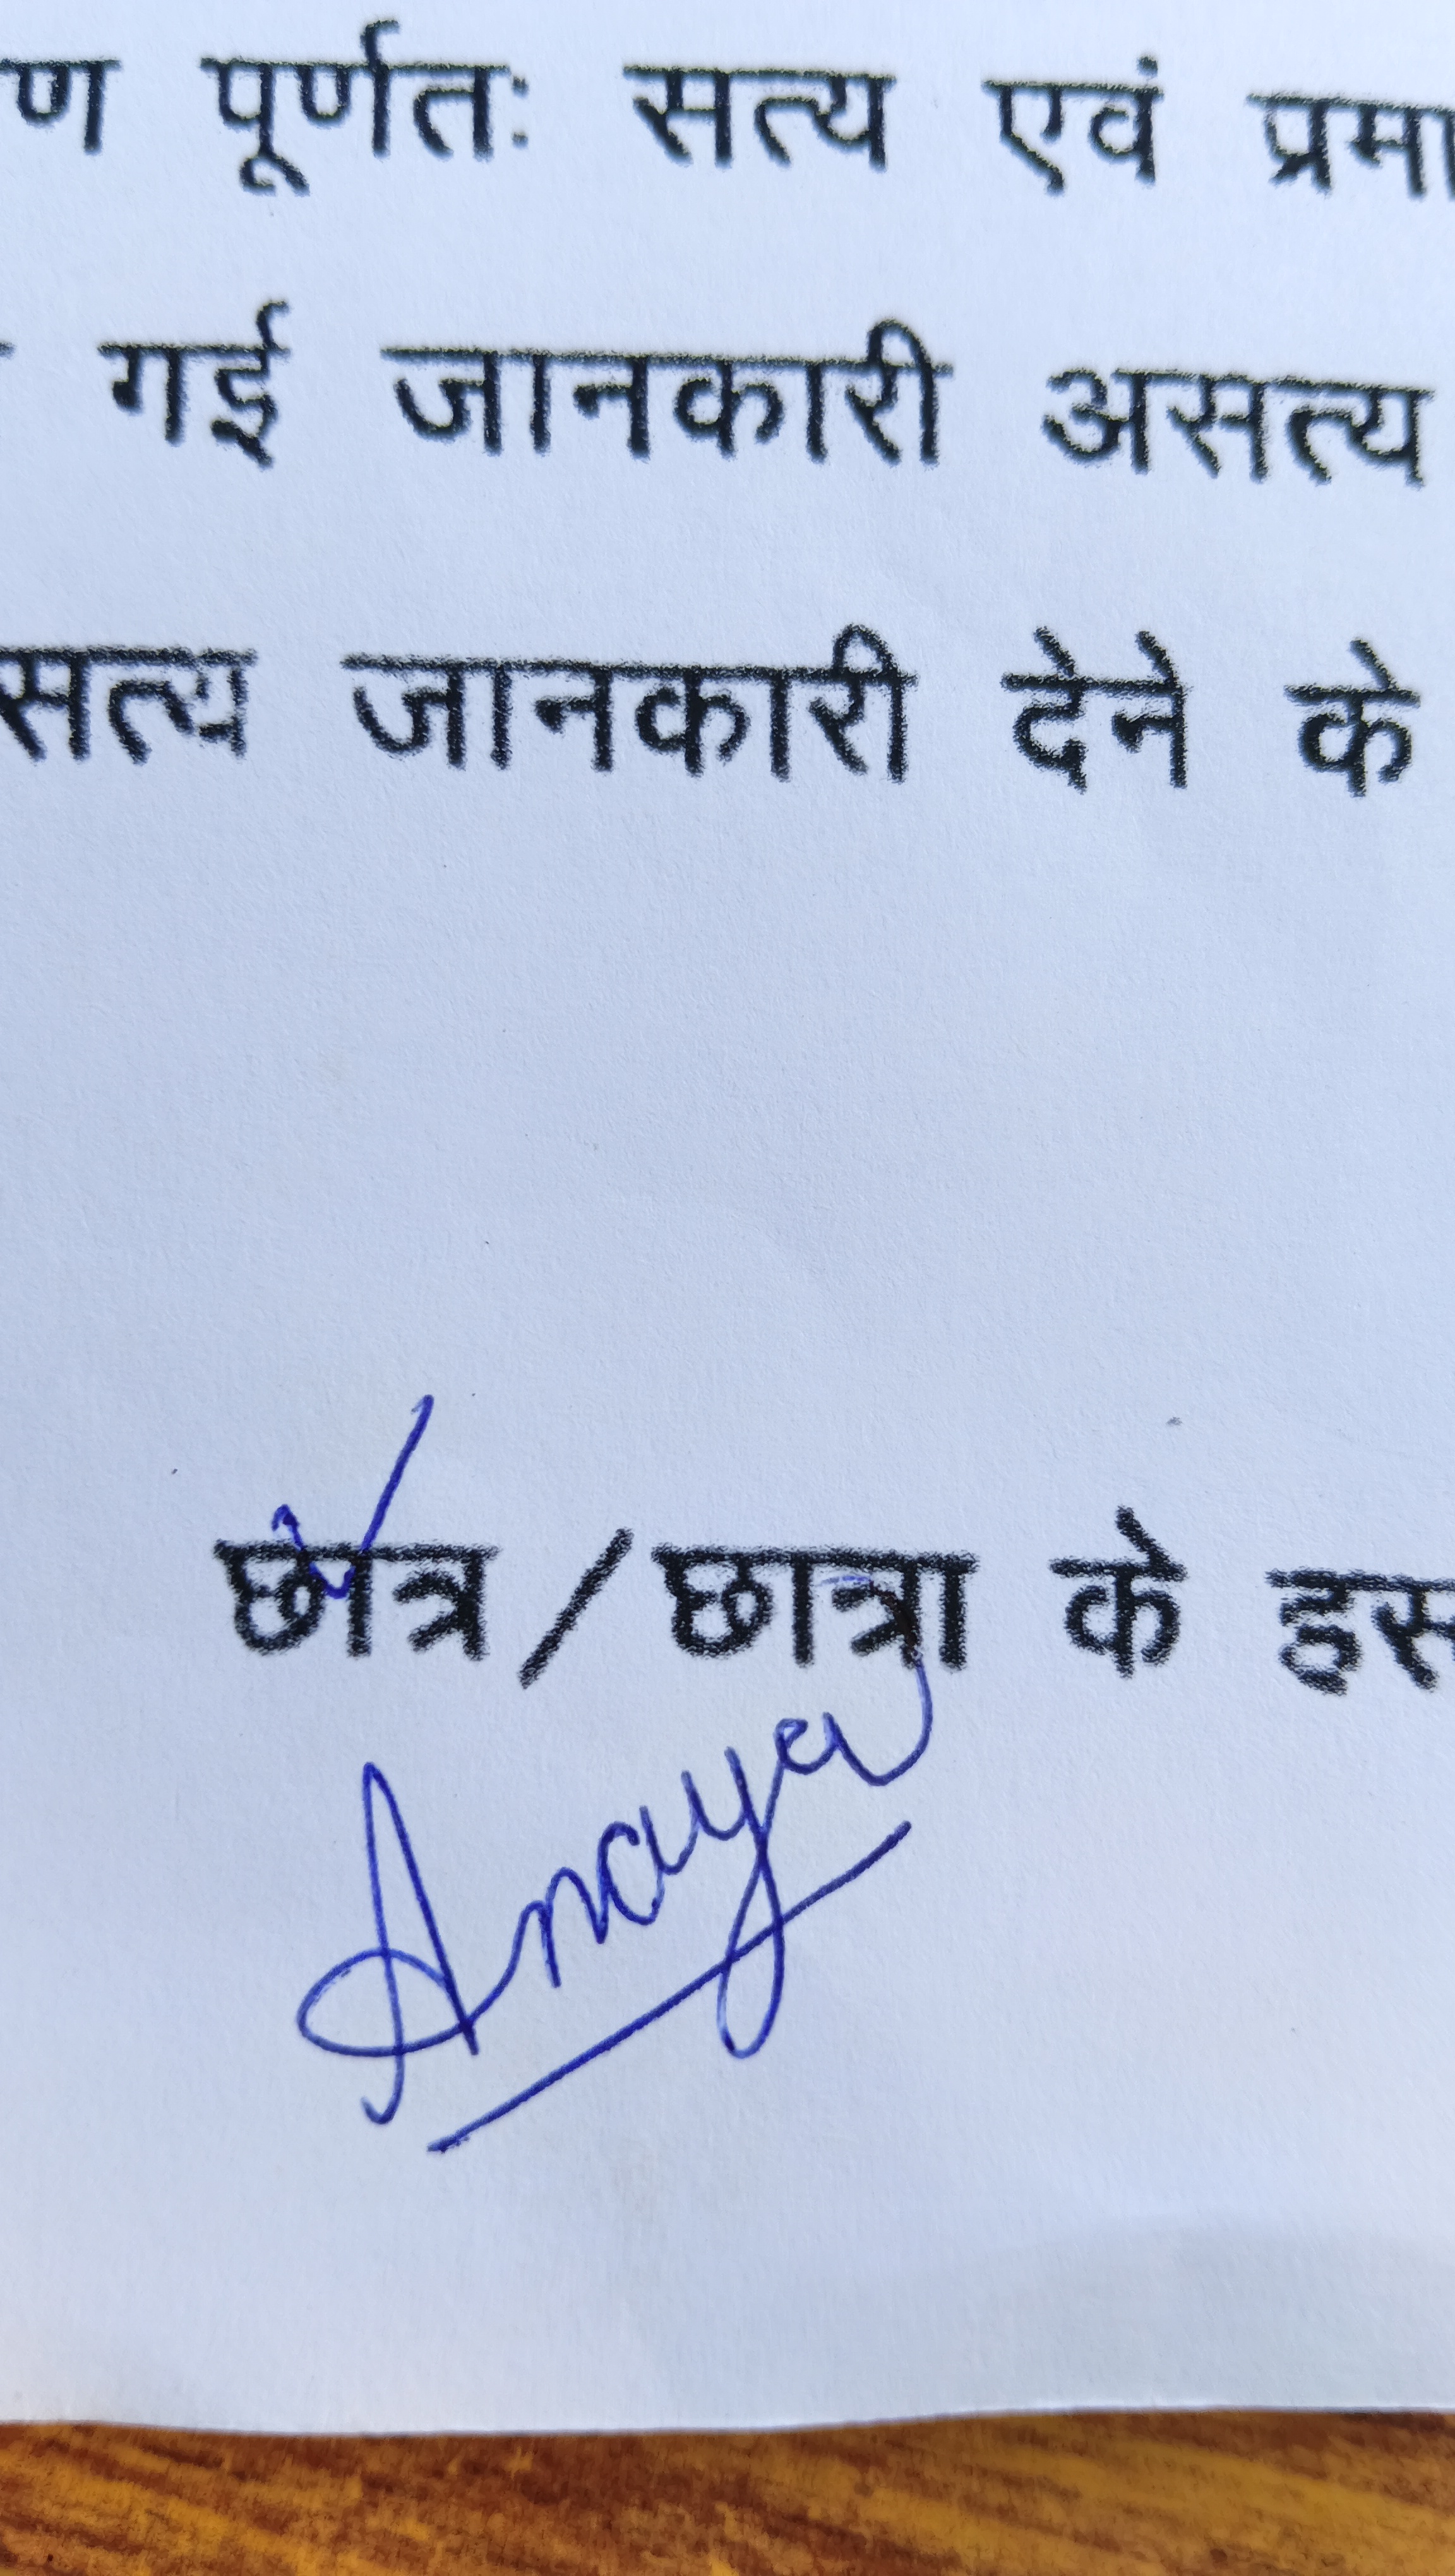 ण पूर्णतः सत्य एवं प्रमा
गई जानकारी असत्य
सत्य जानकारी देने के
छात्र / छात्रा के हस
Anaya